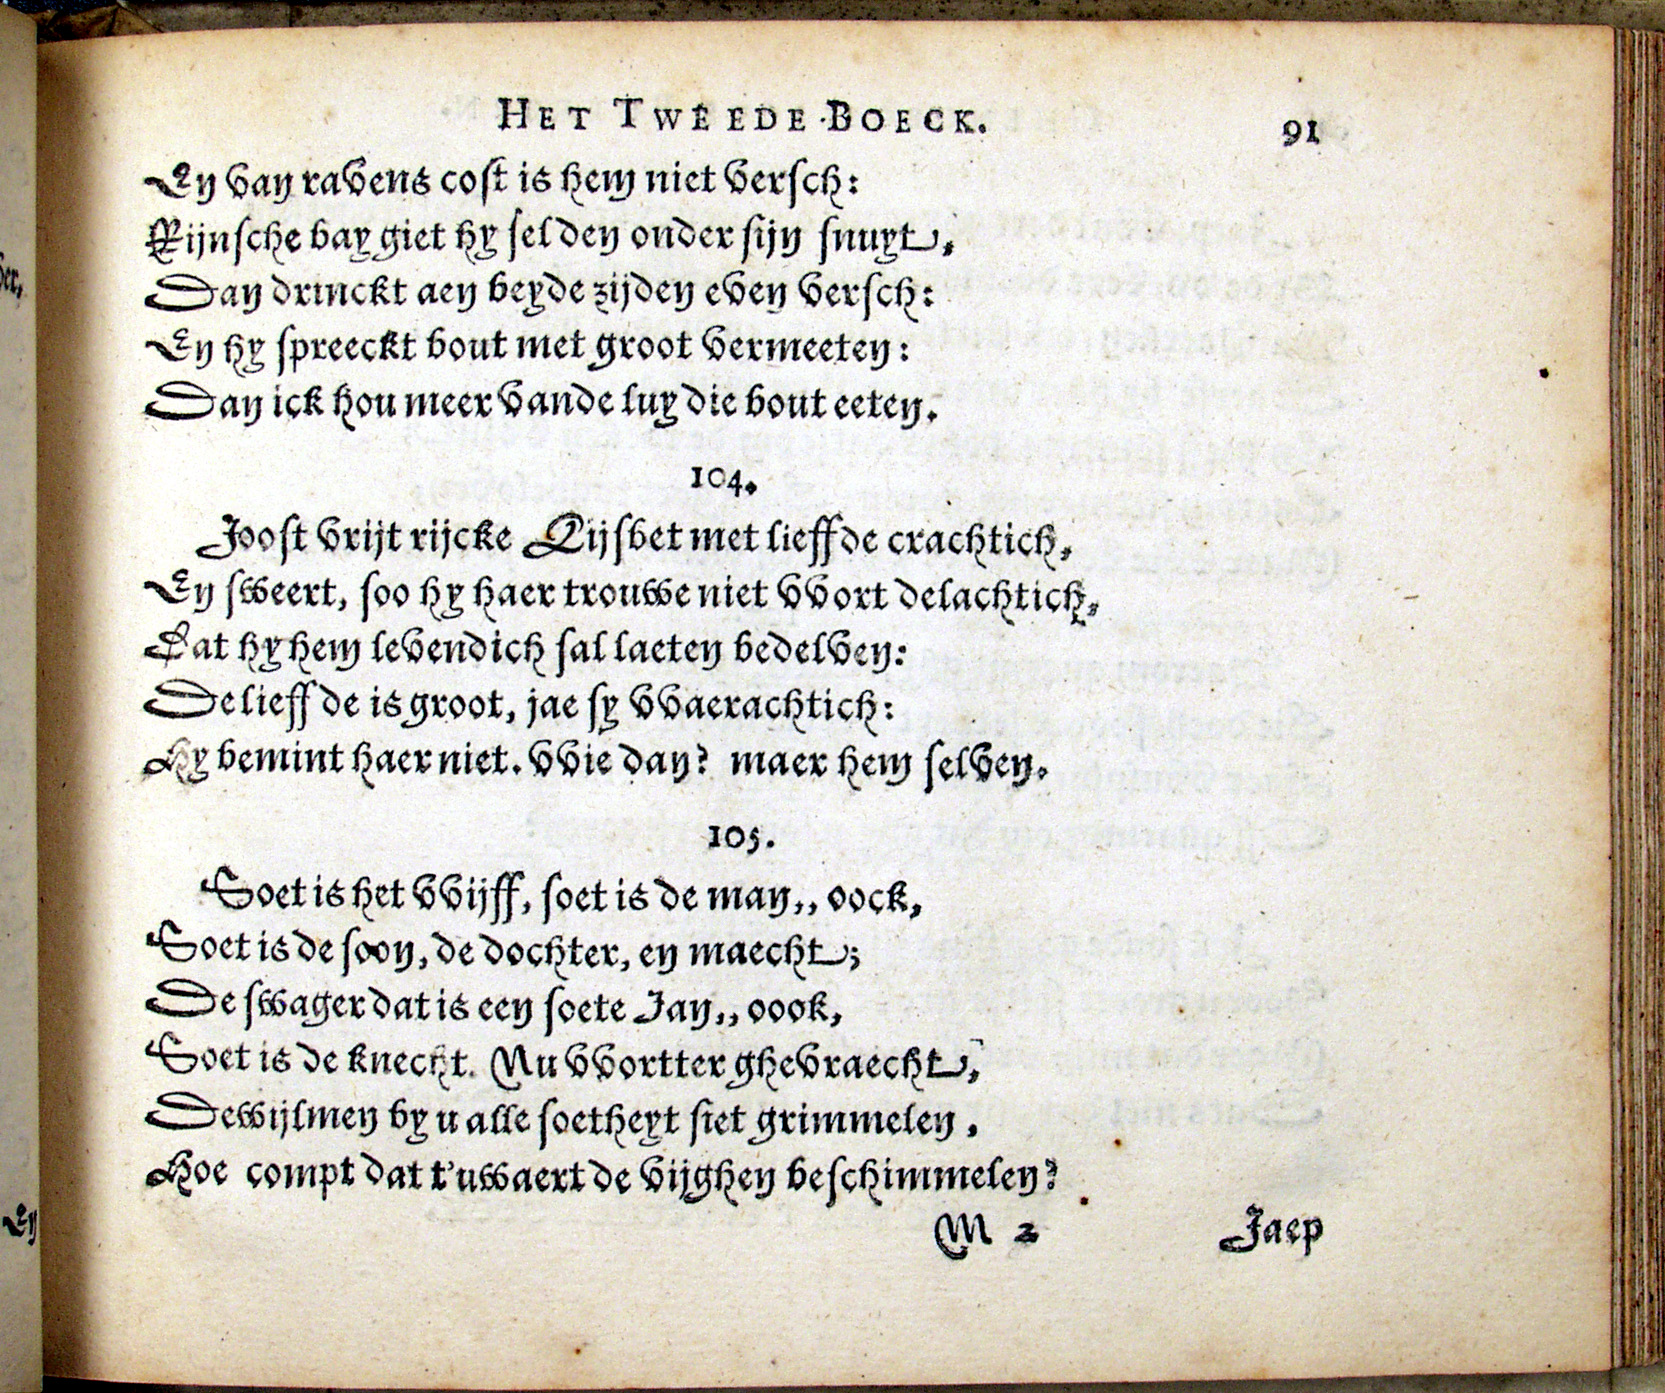 HET TWEEDE BOECK. 91
En van ravens cost is hem niet versch:
Rijnsche bay giet hy selden onder sijn snuyt,
Dan drinckt aen beyde zijden even versch:
En hy spreeckt bout met groot vermeeten:
Dan ick hou meer vande luy die bout eeten.
104.
Joost vrijt rijcke Lijsbet met lieffde crachtich,
En sweert, soo hy haer trouwe niet vvort delachtich,
Dat hy hem levendich sal laeten bedelven:
De lieffde is groot, jae sy vvaerachtich:
Hy bemint haer niet. vvie dan? maer hem selven.
105.
Soet is het vvijff, soet is de man,, oock,
Soet is de soon, de dochter, en maecht;
De swager dat is een soete Jan,, oook,
Soet is de knecht. Nu vvortter ghevraecht,
Dewijlmen by u alle soetheyt siet grimmelen,
Hoe compt dat t'uwaert de vijghen beschimmelen?
M 2 Jaep
her,
En